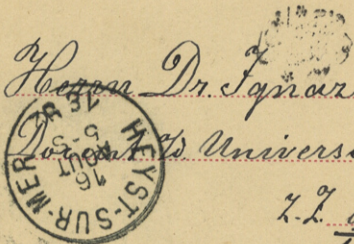 Herrn Dr. Ignaz
Docent d. Univers
z. Z.
HEYST-SUR-MER
16
AOUT
5-S